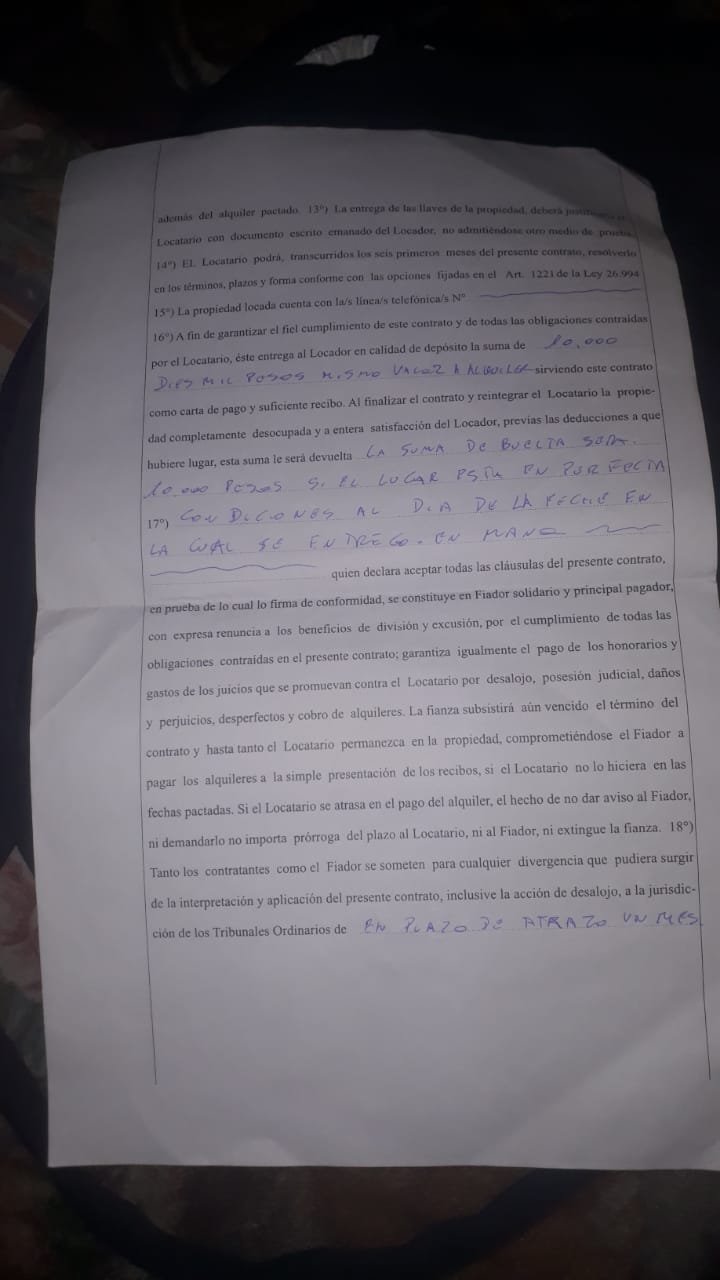 además del alquiler pactado. 13º) La entrega de las llaves de la propiedad, deberá
Locatario con documento escrito emanado del Locador, no admitiéndose otro medio de prueba.
14º) EL Locatario podrá, transcurridos los seis primeros meses del presente contrato, resolverlo
en los términos, plazos y forma conforme con las opciones fijadas en el Art. 1221 de la Ley 26.994
15º) La propiedad locada cuenta con la/s línea/s telefónica/s Nº
16º) A fin de garantizar el fiel cumplimiento de este contrato y de todas las obligaciones contraídas
por el Locatario, éste entrega al Locador en calidad de depósito la suma de 10,000
DIES MIL PESOS MISMO VALOR A ALQUILER sirviendo este contrato
como carta de pago y suficiente recibo. Al finalizar el contrato y reintegrar el Locatario la propie-
dad completamente desocupada y a entera satisfacción del Locador, previas las deducciones a que
hubiere lugar, esta suma le será devuelta LA SUMA DE BUELTA SERA.
10.000 PESOS SI EL LUGAR ESTA EN PERFECTA
17º) CONDICIONES AL DIA DE LA FECHE EN
LA CUAL SE ENTREGO. EN MANO
quien declara aceptar todas las cláusulas del presente contrato,
en prueba de lo cual lo firma de conformidad, se constituye en Fiador solidario y principal pagador,
con expresa renuncia a los beneficios de división y excusión, por el cumplimiento de todas las
obligaciones contraídas en el presente contrato; garantiza igualmente el pago de los honorarios y
gastos de los juicios que se promuevan contra el Locatario por desalojo, posesión judicial, daños
y perjuicios, desperfectos y cobro de alquileres. La fianza subsistirá aún vencido el término del
contrato y hasta tanto el Locatario permanezca en la propiedad, comprometiéndose el Fiador a
pagar los alquileres a la simple presentación de los recibos, si el Locatario no lo hiciera en las
fechas pactadas. Si el Locatario se atrasa en el pago del alquiler, el hecho de no dar aviso al Fiador,
ni demandarlo no importa prórroga del plazo al Locatario, ni al Fiador, ni extingue la fianza. 18º)
Tanto los contratantes como el Fiador se someten para cualquier divergencia que pudiera surgir
de la interpretación y aplicación del presente contrato, inclusive la acción de desalojo, a la jurisdic-
ción de los Tribunales Ordinarios de EN PLAZO DE ATRAZO UN MES